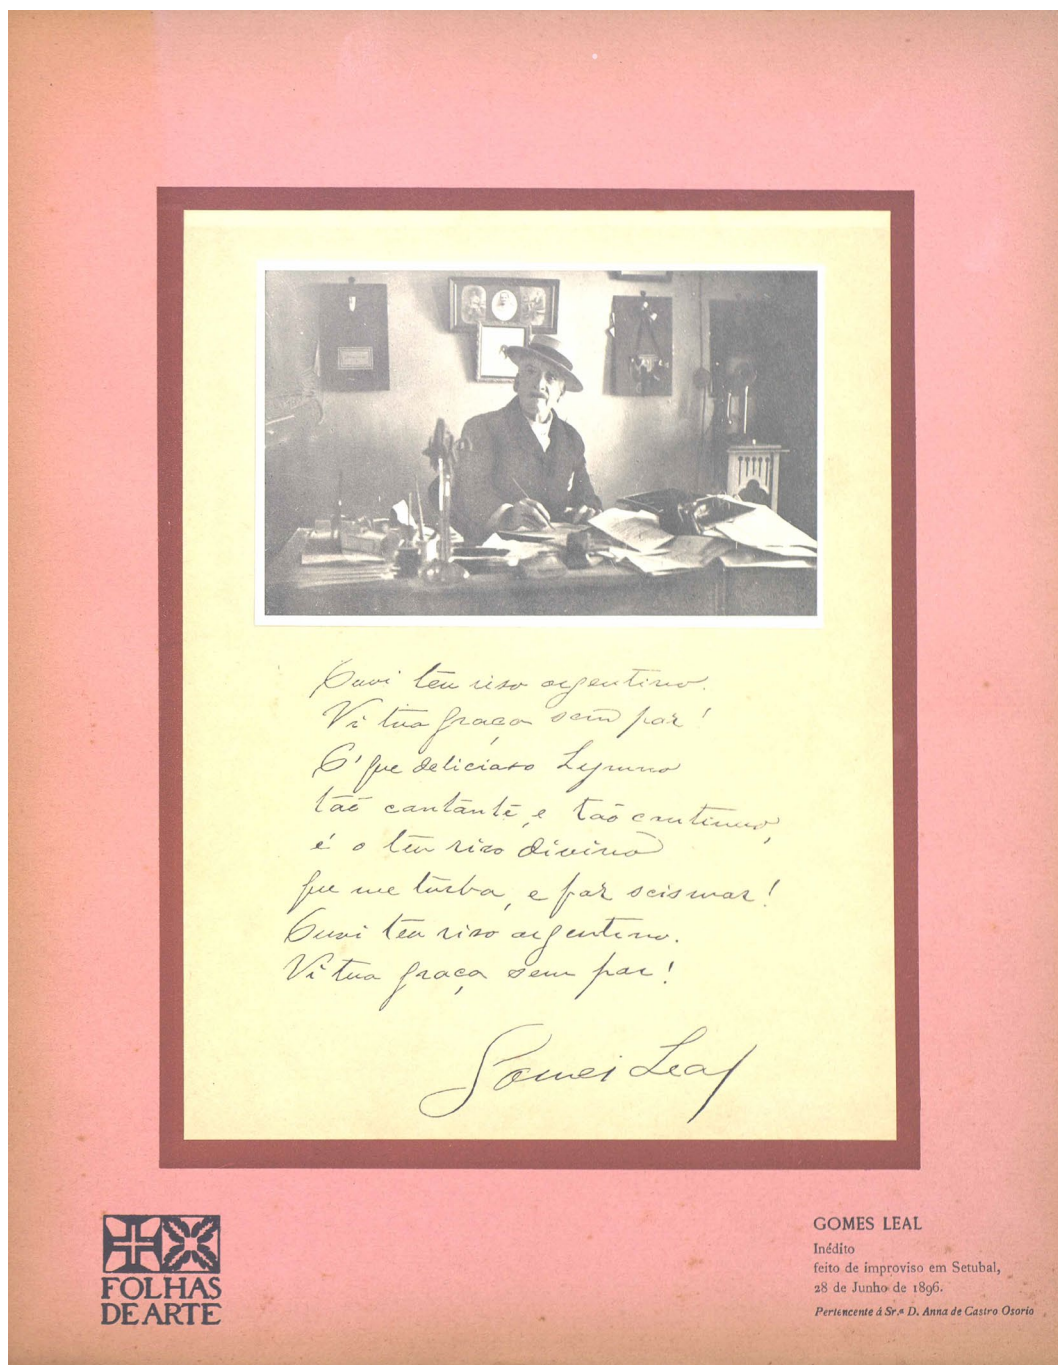 Ouvi teu riso argentino.
Vi tua graça sem par!
O' que delicioso hymno
tão cantante, e tão continuo,
é o teu riso divino
que me turba, e faz scismar!
Ouvi teu riso argentino.
Vi tua graça sem par!
Gomes Leal
FOLHAS
DE ARTE
GOMES LEAL
Inédito
feito de improviso em Setubal,
28 de Junho de 1896.
Pertencente á Sr.ª D. Anna de Castro Osorio